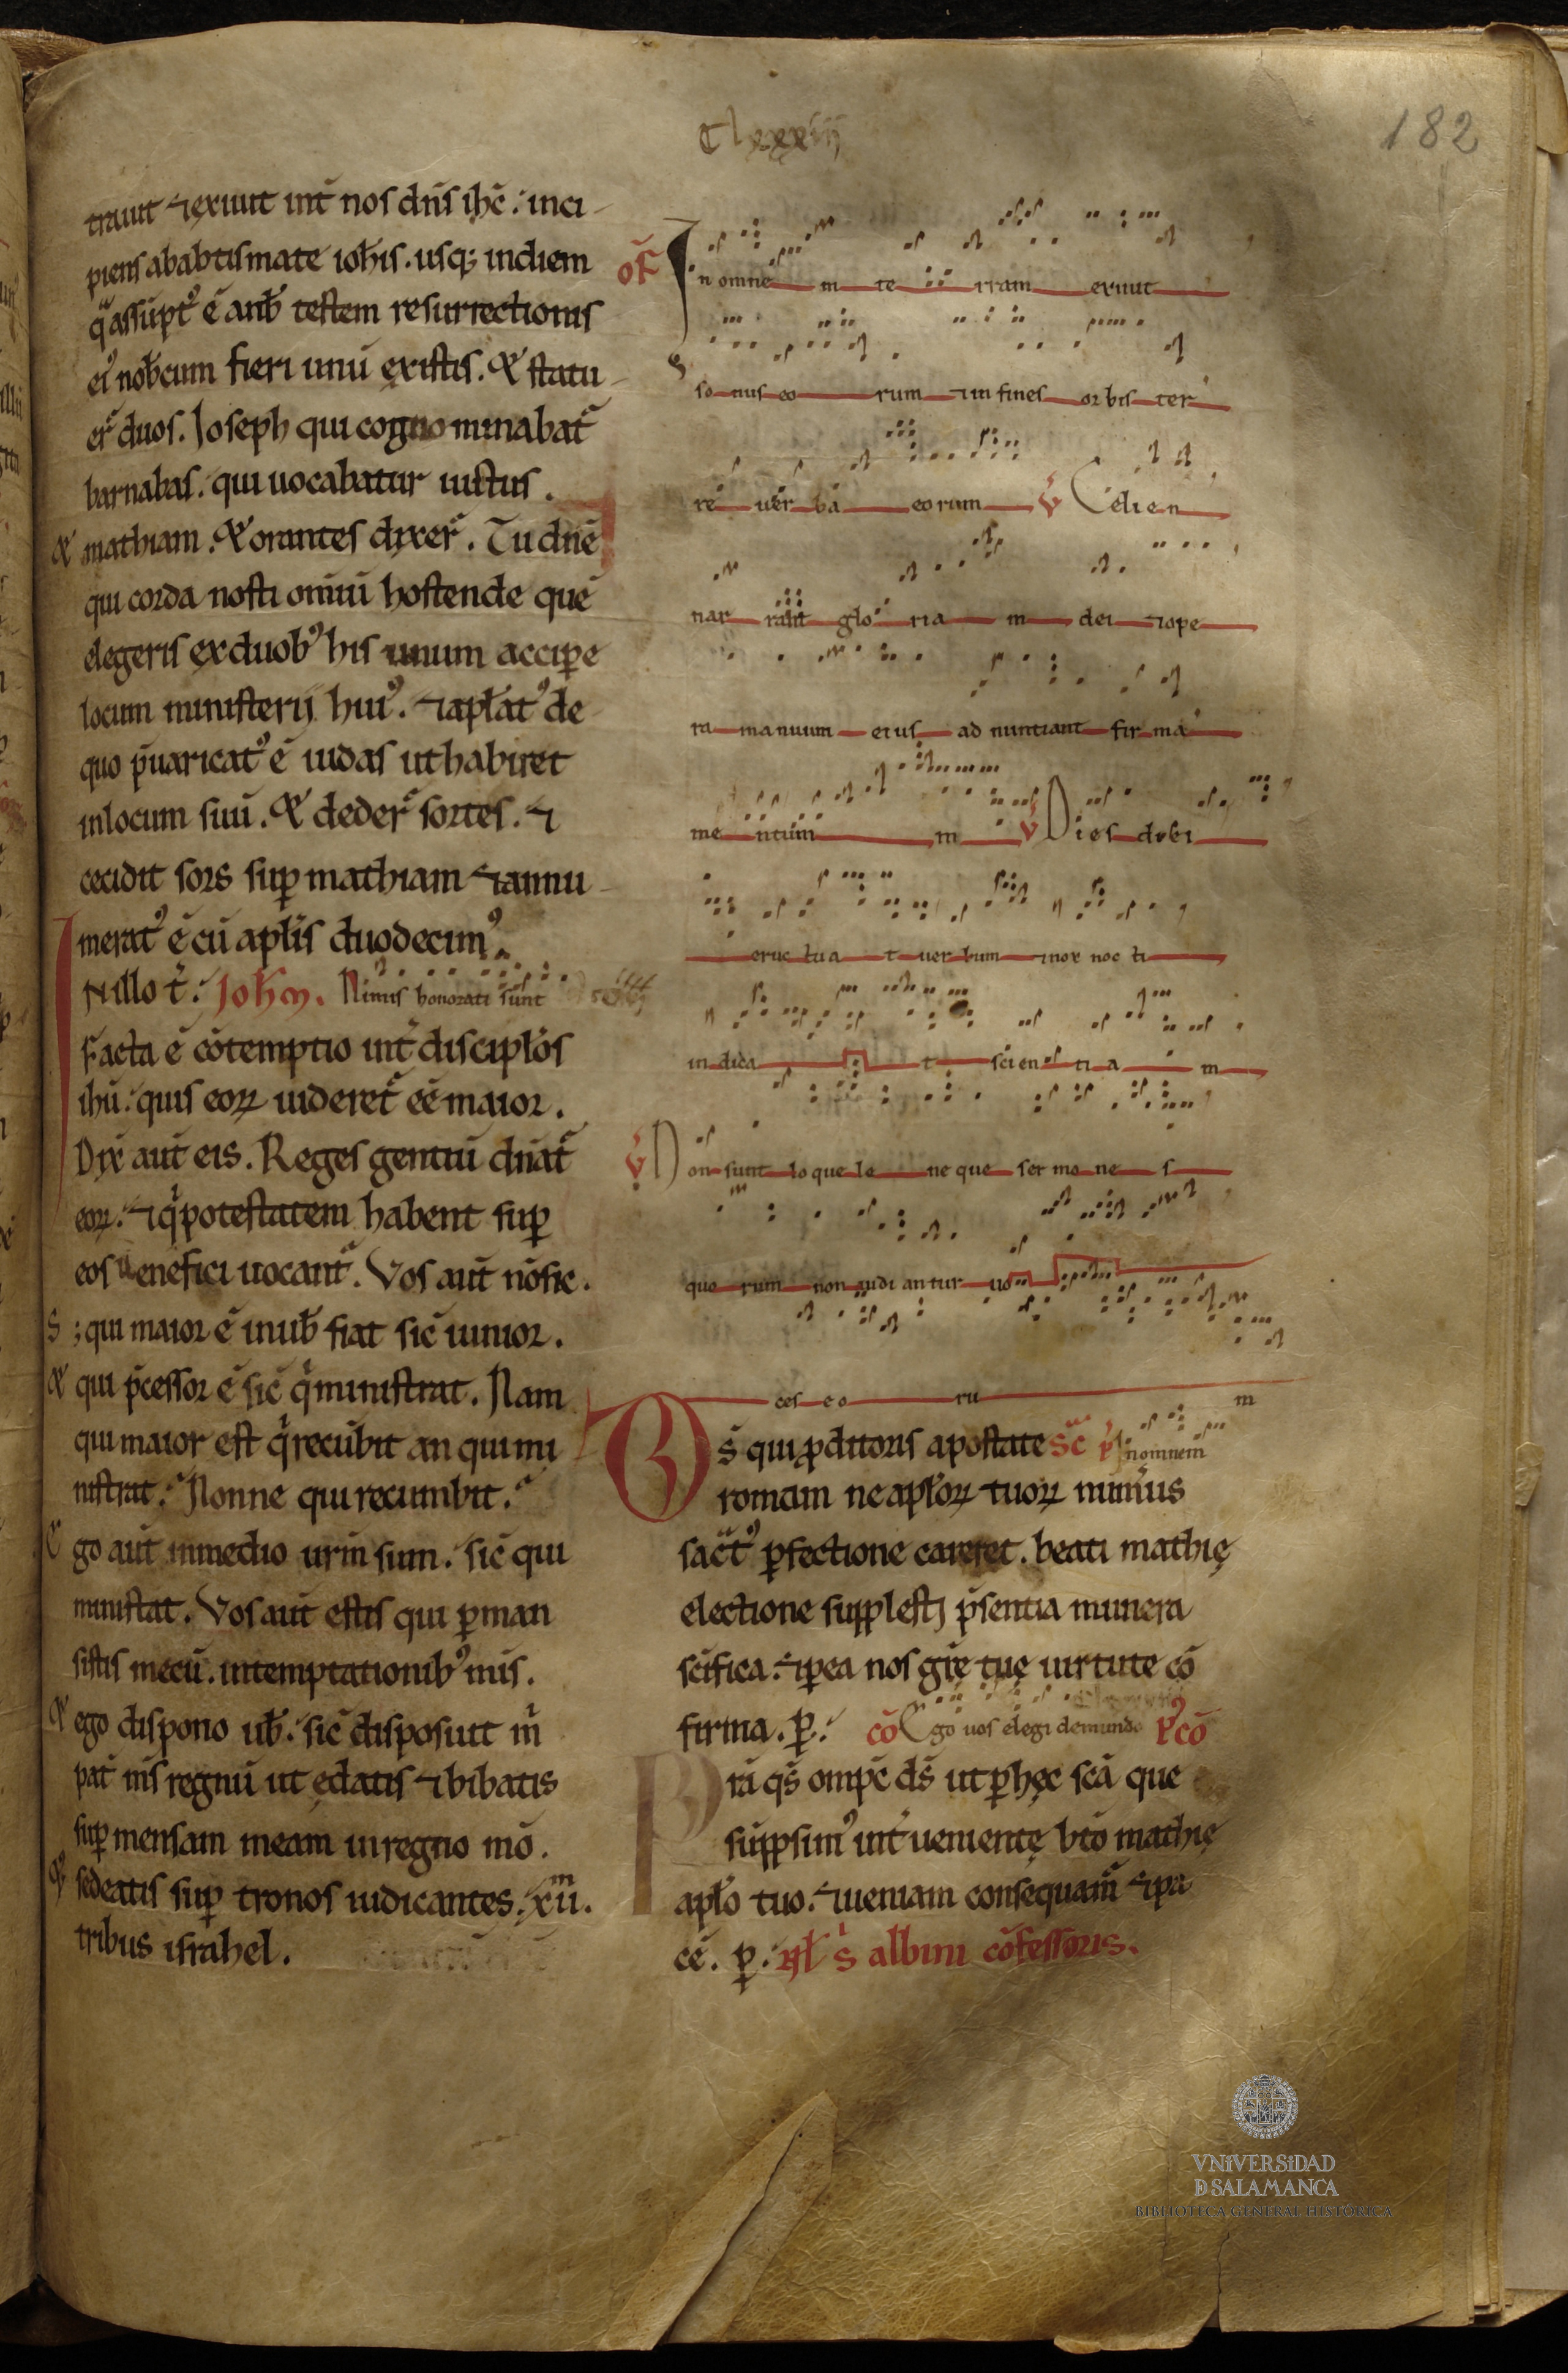 Clxxxiij
182
trauit ⁊ exiuit int̄ nos dn̄s ihc̄: inci-
piens ababtismate ioh̄is. usq; indiem
q̄ assūpt᾿ ē an̄b testem resurrectionis
ei᾿ nob̄cum fieri unū existis. & statu-
er̄ duos. Joseph qui cognominabat̄
barnabas. qui uocabatur iustus.
& mathiam. & orantes dixer̄. Tu dn̄e
qui corda nosti om̄iū hostende quē
elegeris exduob᾿ his unum accipe
locum ministerij hui᾿. ⁊ apl̄at᾿ de
quo p̄uaricat᾿ ē iudas ut habiret
inlocum suū. & deder̄ sortes. ⁊
cecidit sors sup̄ mathiam ⁊ annu-
merat᾿ ē cū apl̄is duodecim᾿.
N illo t̄. Joh̄m. Nimis honorati sunt
Facta ē cōtemptio int̄ discipl̄os
ihū: quis eoꝝ uideret̄ eē maior.
Dix̄ aut̄ eis. Reges gentiū dn̄at̄
eoꝝ: ⁊ q̄ potestatem habent sup̄
eos benefici uocant̄. Vos aut̄ nōsic.
S; qui maior ē inub̄ fiat sic̄ iunior.
& qui p̄cessor ē sic̄ q̄ ministrat. Nam
qui maior est q̄ recūbit an qui mi
nistrat. Nonne qui recumbit.
Ego aut̄ inmedio ur̄m sum. sic̄ qui
ministat. Vos aut̄ estis qui ꝑman
sistis mecū. intemptationib᾿ mis.
& ego dispono ub̄. sic̄ disposuit m̄
pat̄ m̄s regnū ut edatis ⁊ bibatis
sup̄ mensam meam inregno mō.
& sedeatis sup̄ tronos iudicantes. xii.
tribus israhel.
of̄ In omne m te rram exiuit
so nus eo rum ⁊ in fines orbis ter
re uer ba eorum v̄ Celi en
nar rant glo ria m dei ⁊ ope
ra manuum eius ad nuntiant firma
me ntum m v̄ Dies diei
eruc tua t uer bum ⁊ nox noc ti
indica t scien ti a m
v̄ Non sunt loque le ne que ser mo ne s
quo rum non audi antur uo
ces e o ru m
Ds̄ qui ꝓditoris apostate sc̄ p̄ Inomnem
romam ne apl̄oꝝ tuoꝝ num̄us
sac̄t᾿ ꝑfectione careret. beati mathię
electione supplesti p̄sentia munera
sc̄ifica. ⁊ ꝑea nos gr̄ę tuę uirtute cō
firma. ꝑ. cō Ego uos elegi demundo p᾿cō
Pr̄a qs̄ omp̄c ds̄ ut ꝑhęc sc̄a que
sūpsim᾿ int̄uenientę btō mathię
apl̄o tuo. ⁊ ueniam consequam̄ ⁊ pa
cē. ꝑ. kl̄ s̄ albini cōfessoris.
VNiVERSiDAD
Ð SALAMANCA
BIBLIOTECA GENERAL HISTÓRICA